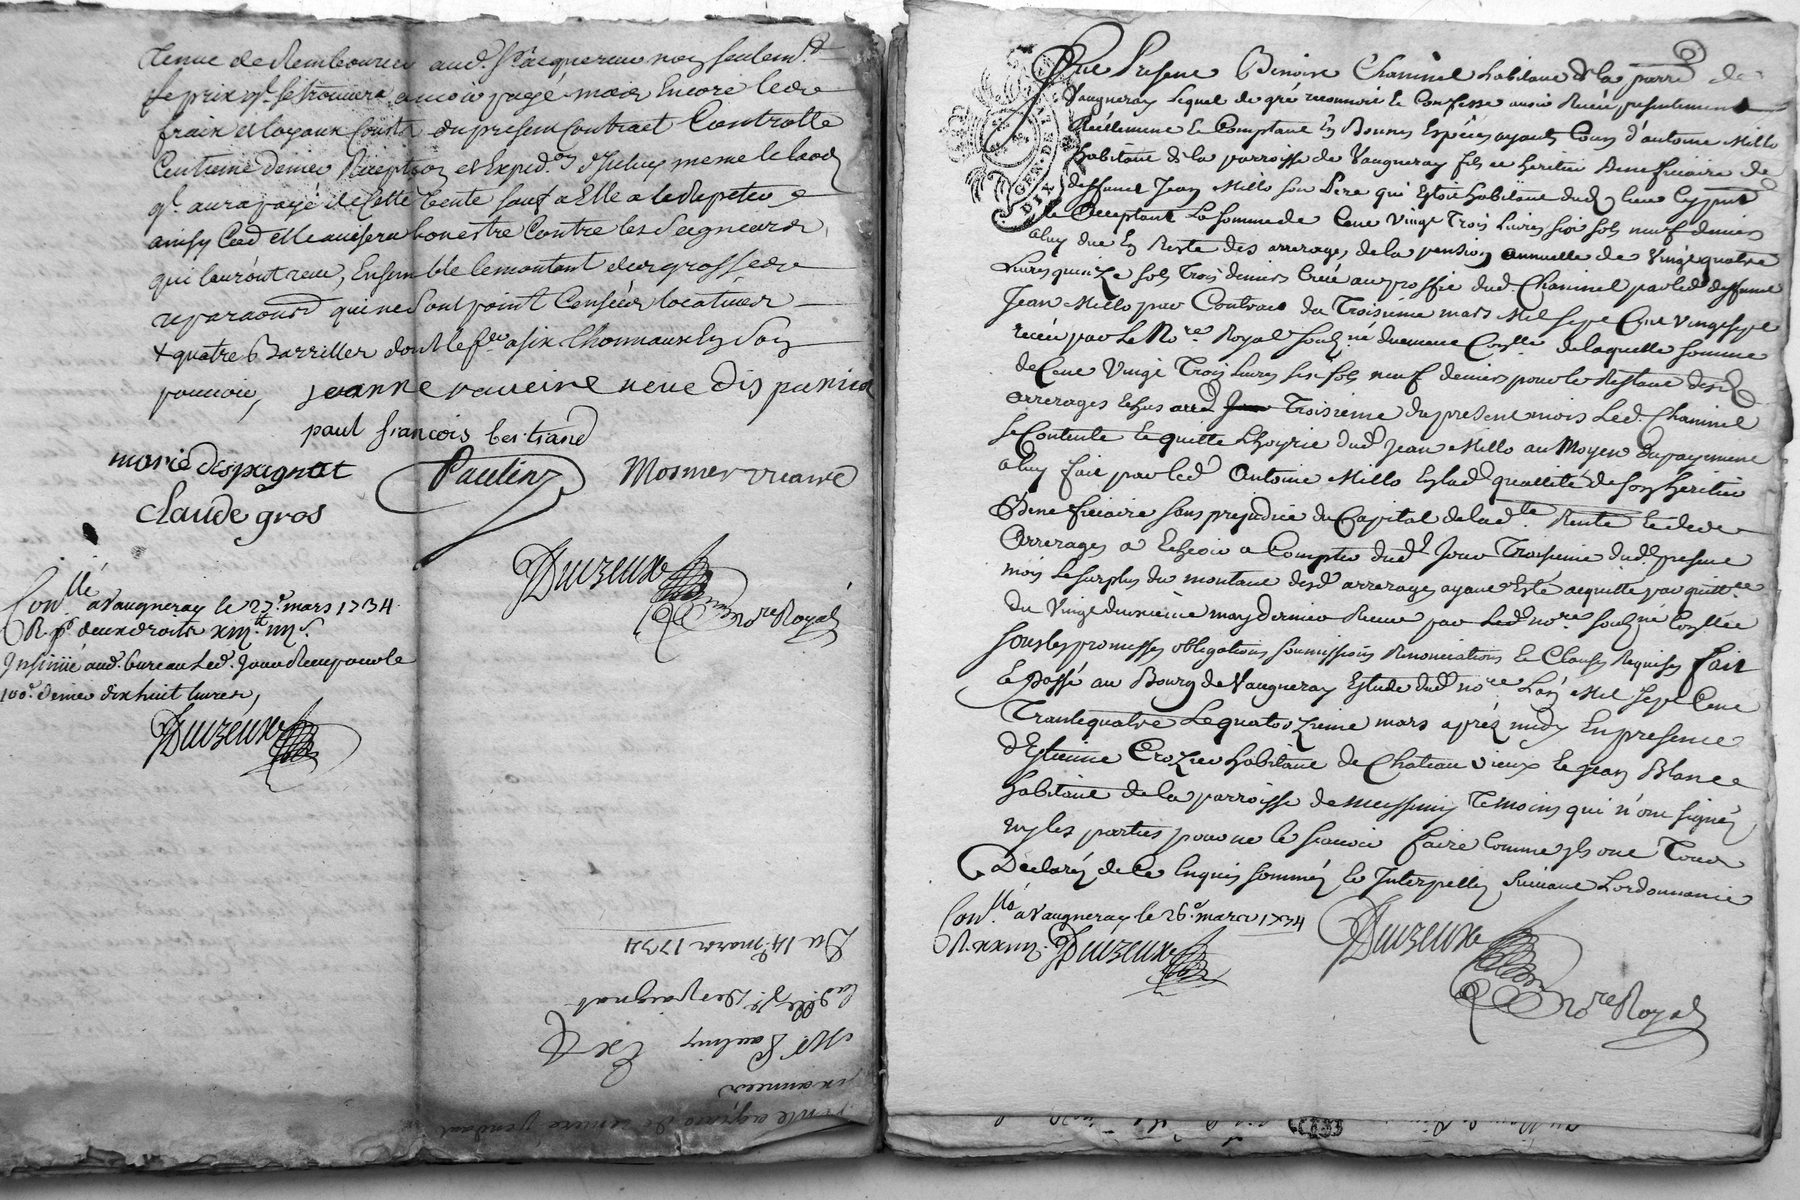 tenue de Rembourcer aud. Sr. acquereur non seulemt.
le prix ql. se trouvera avoir payé mais Encore les
fraix et loyaux Cousts du present Contract Controlle
Centieme denier Reception et Exped.on d'Iceluy meme le laod
ql. aura payé de cette vente sauf a Elle a le Repeter
ainsy Et ad. Elle avisera bon estre Contre les Seigneurs
qui l'auront reçu, Ensemble le montant des grosses
reparaons qui ne sont point Censées locatives
+ quatre Barriller
pouvoir, jeanne raveire veuve dispanian
paul françois bertrand
marie dispagnat Paulin Mosnier vicaire
claude gros
Duizeux
no.re Royal
Con.llé a Vaugneray le 27e. mars 1734.
R. pr. deux droits xiii.tt iiii s.
Insinué aud. bureau led. Jour Reçu pour le
100e. denier dix huit livres,
Duizeux
Du 14e. mars 1734
lad. Elle Despaignat
Mr. Paulin Ex
six années
vente a grace de remere pendant
GEN. DE LION
DIX
Fut Present Benoist Chaminel habitant de la parr. de
Vaugneray lequel de gré reconnoit et Confesse avoir Reçeu presentement
Reellement et Comptant En Bonnes Espéces ayant Cours d'antoine Millo
habitant de la parroisse de Vaugneray fils et heritier Beneficiaire de
deffunt Jean Millo son Pere qui Estoit habitant dud. lieu Cy present
et acceptant La somme de Cent Vingt Trois livres six sols neuf deniers
a luy due En Reste des arrerages de la pension annuelle de Vingt quatre
Livres quinze sols Trois deniers Creée au proffit dud. Chaminel par led. deffunt
Jean Millo par Contract du Troisieme mars Mil sept Cent Vingt sept
receu par le No.re Royal soub.né duement Con.llé de laquelle somme
de Cent Vingt Trois livres six sols neuf deniers pour le Restant desd.
arrerages Echus aud. Jour Troisieme du present mois Led. Chaminel
se Contente et quitte L'hoyrie dud. Jean Millo au Moyen du payement
a luy fait par led. Antoine Millo En lad. quallité de son heritier
Bénéficiaire sans prejudice du Capital de lad.te Rente et des
Arrerages a Echeoir a Compter dud. Jour Troisieme dud. present
mois Le surplus du montant desd. arrerages ayant Esté acquitté par quitt.ce
du Vingt deuxieme may dernier Reçue par led. no.re soub.né Con.llée
sous les promesses obligations soumissions Renonciations et Clauses Requises fait
et Passé au Bourg de Vaugneray Estude dud. no.re L'an Mil Sept Cent
Trante quatre Le quatorzieme mars aprés midy En presence
d'Estienne Crozier habitant de Chateau vieux et Jean Blanc
habitant de la parroisse de Messimy temoins qui n'ont signés
ny les parties pour ne le scavoir faire Comme ils ont Tous
Declarés de ce Enquis sommés et Interpellés suivant L'ordonnance
Con.llé a Vaugneray le 26e. mars 1734
R. xxiiii s. Duizeux
Duizeux
no.re Royal